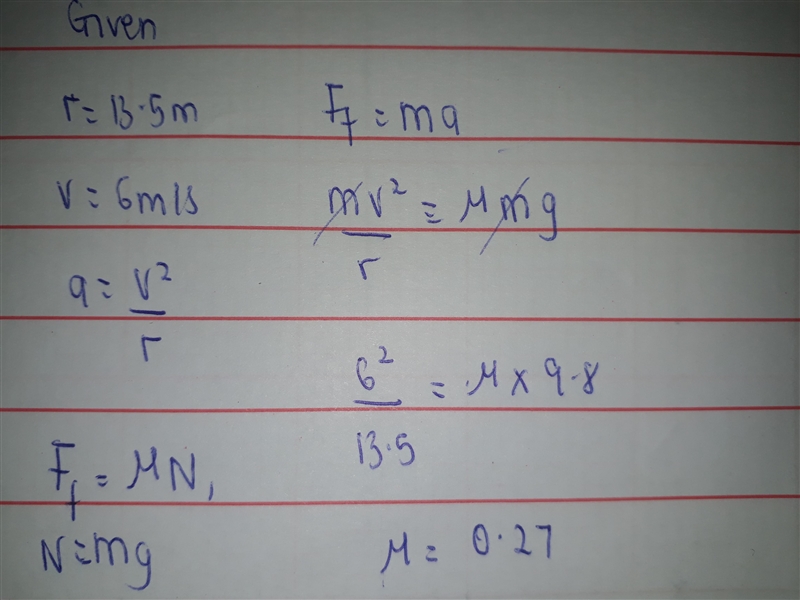 Given
r = 13.5m
v = 6m/s
a = v²/r
F_f = μN,
N = mg
F_f = ma
mv²/r = μmg
6²/13.5 = μ x 9.8
μ = 0.27